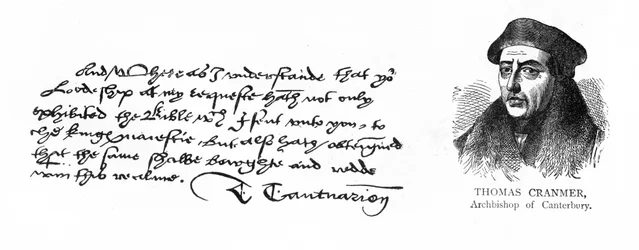 And Whereas I understande that yoʳ
Lordeship at my requeste hath not only
exhibited the Bible wᶜʰ I sent unto you, to
the kings maiestie, But also hath obteigned
that the same shalbe bowghte and redde
wᵗin this realme.
T. Cantuarien
THOMAS CRANMER,
Archbishop of Canterbury.